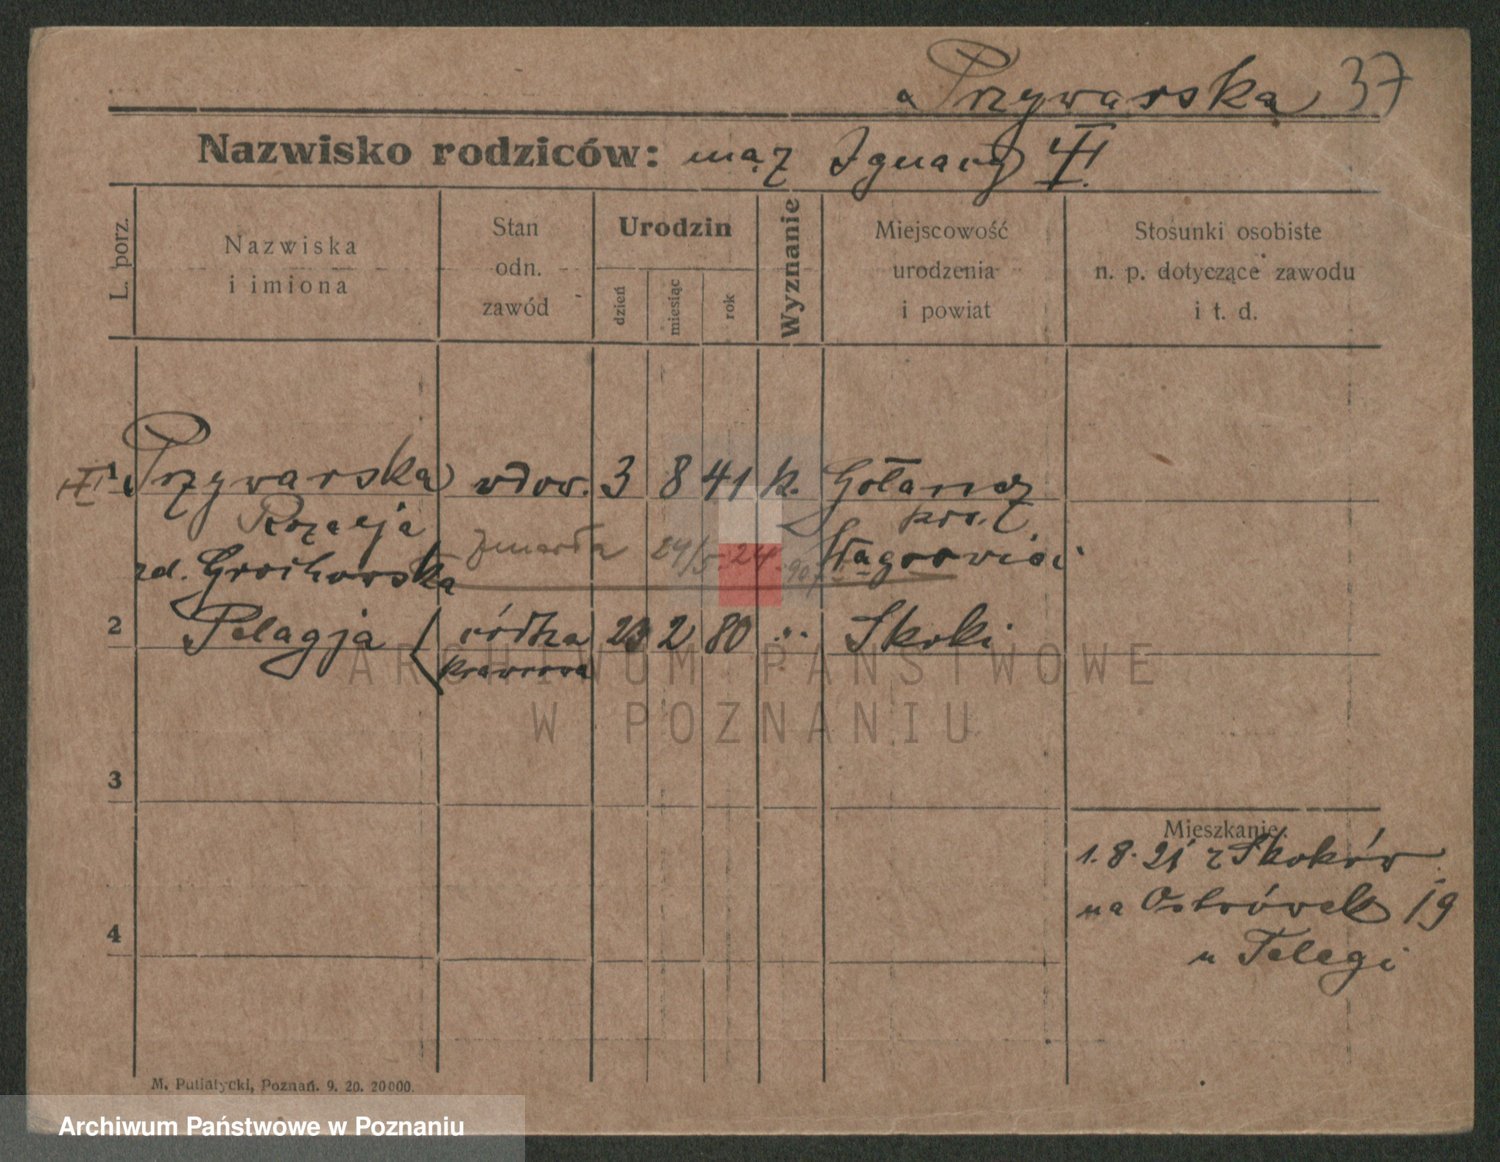 Przywarska 37
Nazwisko rodziców: mąż Ignacy
L. porz.
Nazwiska
i imiona
Stan
odn.
zawód
Urodzin
dzień
miesiąc
rok
Wyznanie
Miejscowość
urodzenia
i powiat
Stosunki osobiste
n. p. dotyczące zawodu
i t. d.
1 Przywarska wdow. 3 8 41 k. Gołancz
Rozalja pow.
zmarła 24/5. 24.
zd. Grochowska Wągrowiec
2 Pelagja córka 23 2 80 " Skoki
krawcowa
3
Mieszkanie:
1. 8. 21 z Skoków
4
na Ostrówek 19
u Telegi
M. Putiatycki, Poznań. 9. 20. 20000.
ARCHIWUM PAŃSTWOWE
W POZNANIU
Archiwum Państwowe w Poznaniu